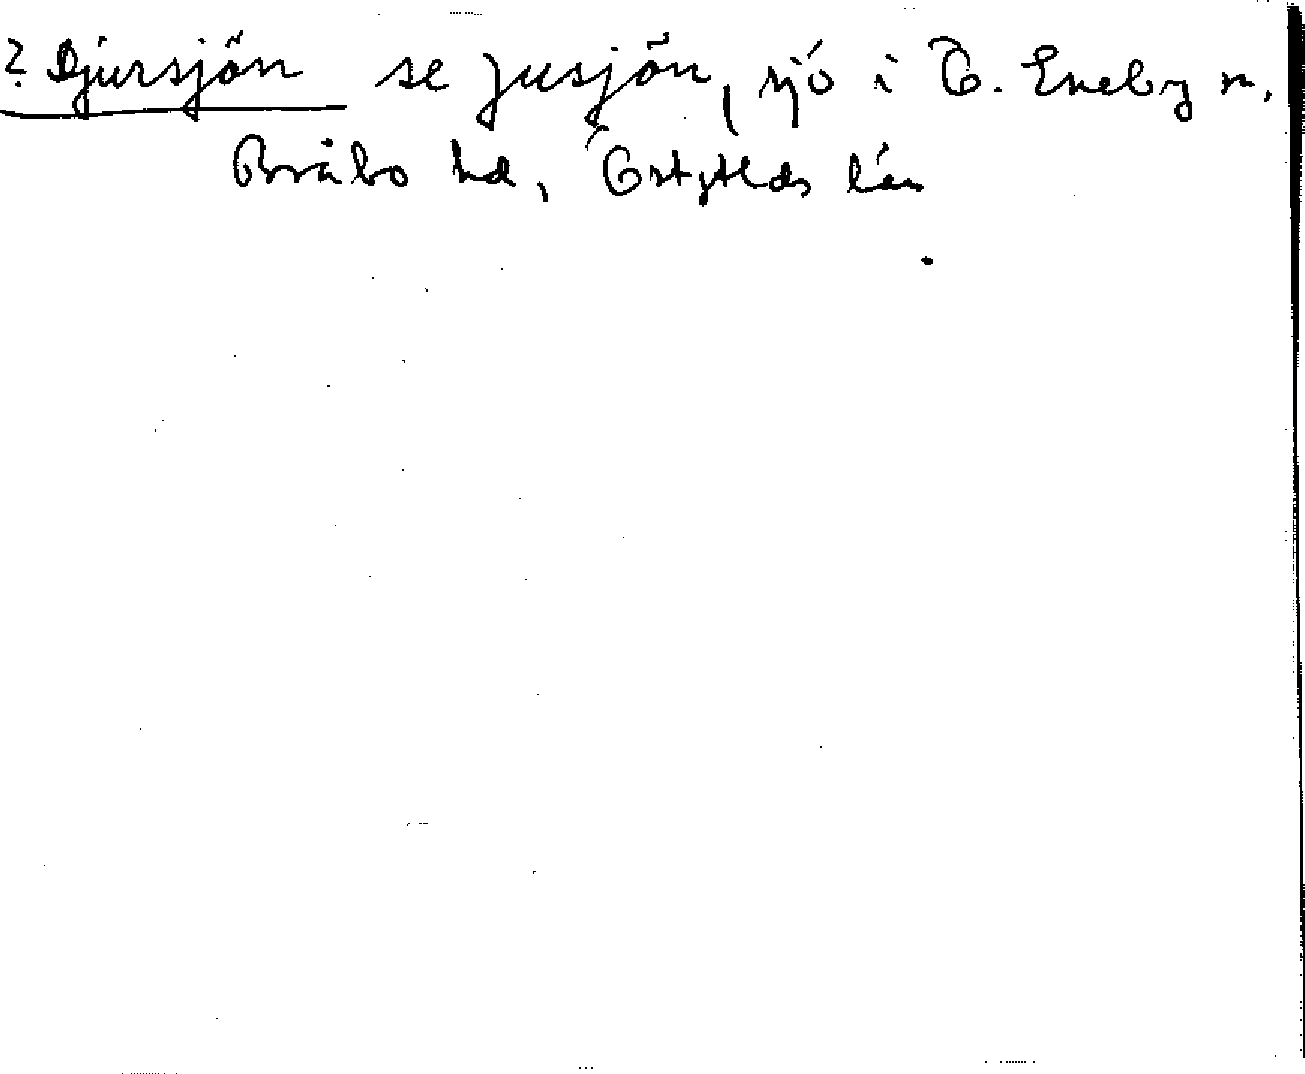 ? Djursjön se Jusjön, sjö i Ö. Eneby sn,
Bråbo hd, Östgtlds län